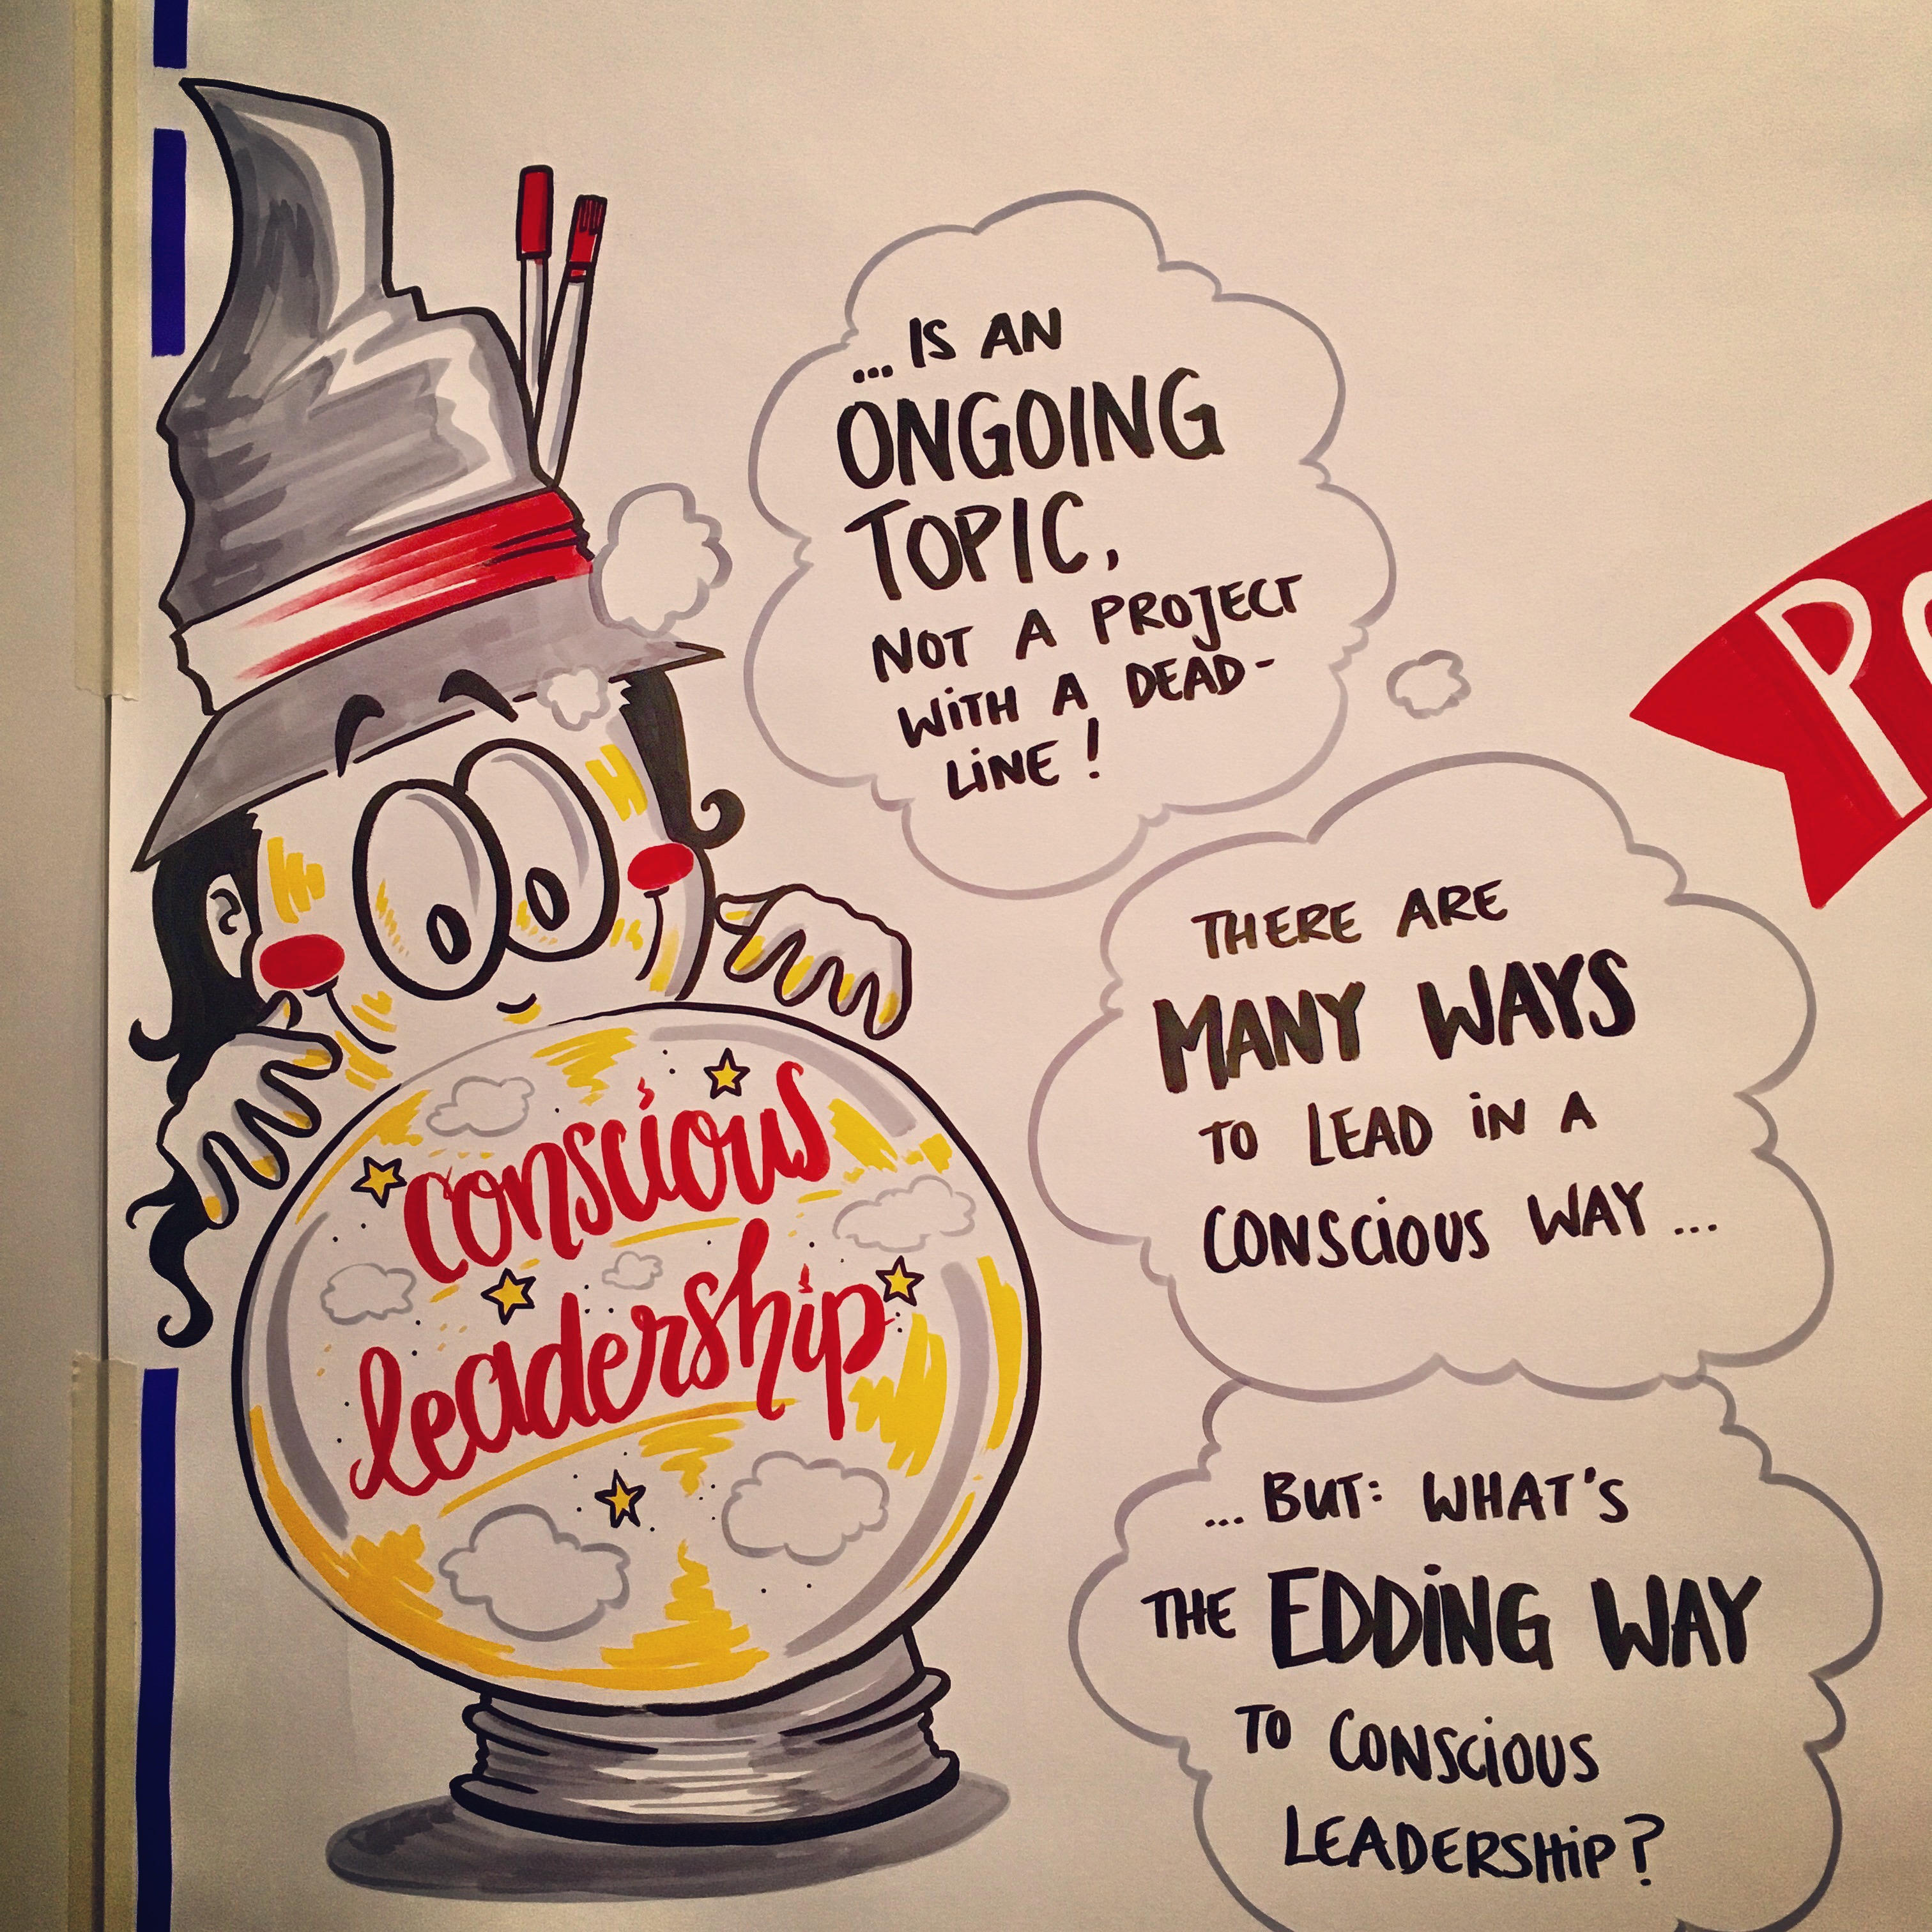 conscious
leadership
... IS AN
ONGOING
TOPIC,
NOT A PROJECT
WITH A DEAD-
LINE!
THERE ARE
MANY WAYS
TO LEAD IN A
CONSCIOUS WAY ...
... BUT: WHAT'S
THE EDDING WAY
TO CONSCIOUS
LEADERSHIP?